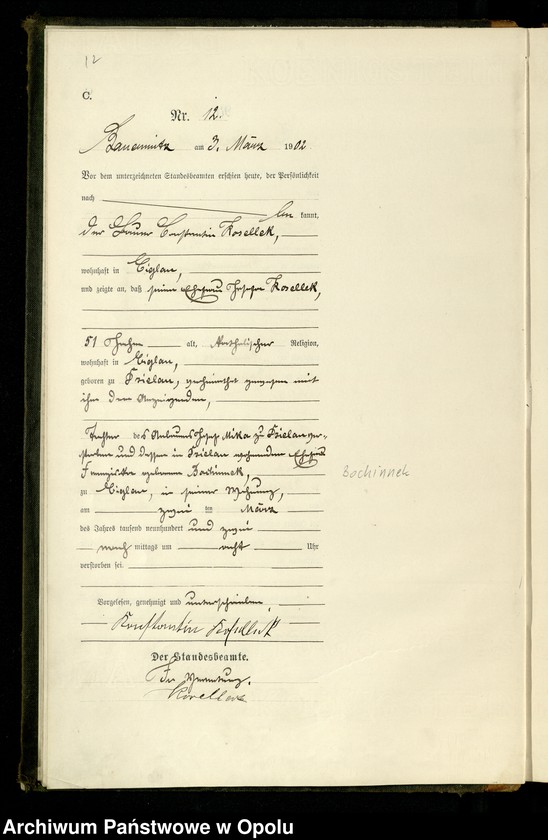 12
C.
Nr. 12.
Bauerwitz am 3. März 1902.
Vor dem unterzeichneten Standesbeamten erschien heute, der Persönlichkeit
nach
be kannt,
der Bauer Constantin Kosellek,
wohnhaft in Eiglau,
und zeigte an, daß seine Ehefrau Josefa Kosellek,
51 Jahre alt, katholischer Religion,
wohnhaft in Eiglau,
geboren zu Dzielau, verheirathet gewesen mit
ihm dem Anzeigenden,
Tochter des Josef Mika zu Dzielau ver-
storben und dessen in Dzielau Ehefrau
Franziska geborenen Bochinnek,
Bochinnek
zu Eiglau, in seiner Wohnung,
am zwei ten März
des Jahres tausend neunhundert und zwei
nach mittags um acht Uhr
verstorben sei.
Vorgelesen, genehmigt und unterschrieben,
Konstantin Kosellek
Der Standesbeamte.
In Vertretung.
Kosellek
Archiwum Państwowe w Opolu